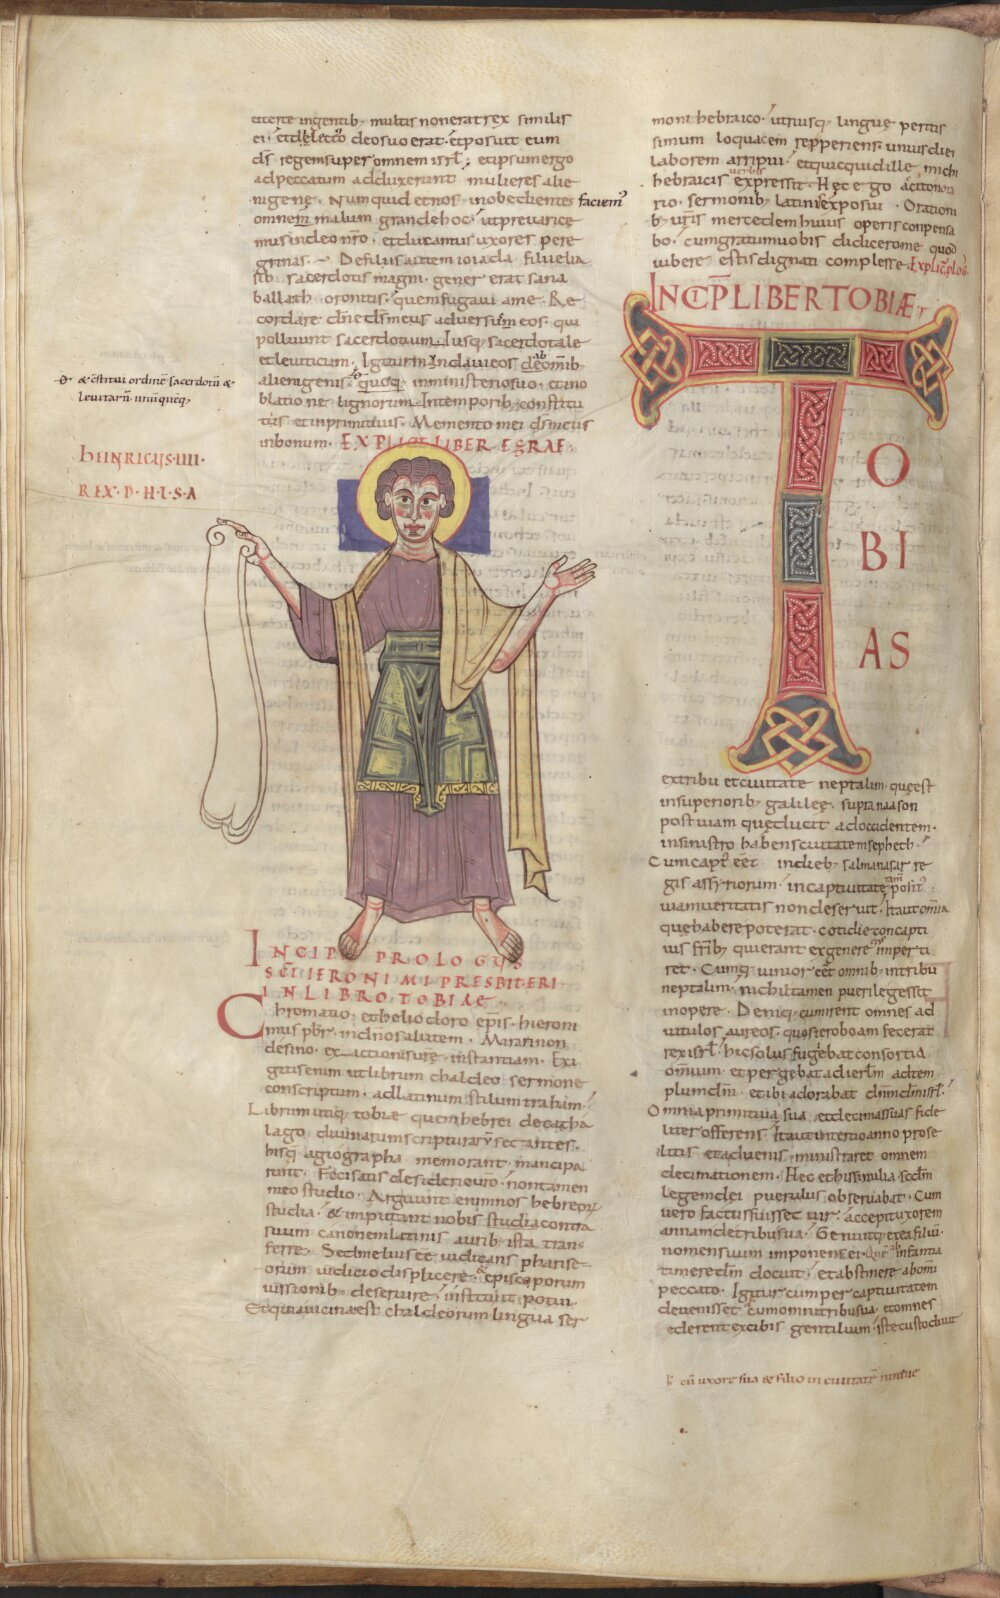 et certe in gentib; multis non erat rex similis
ei. et dilectus deo suo erat. et posuit eum
ds̄ regem super omnem isrl̄; et ipsum ergo
ad peccatum adduxerunt mulieres alie
nigenę. Numquid et nos inobedientes faciem᷒
omnem malum grande hoc. ut prevarice
mus in deo nr̄o. et ducamus uxores pere
grinas. De filiis autem ioiada filii elia
sib sacerdotis magni. gener erat sana
ballath oronitis. quem fugavi a me. Re
cordare dn̄e ds̄ meus adversum eos qui
polluunt sacerdotium. Iusq; sacerdotale
et leviticum. Igitur mundavi eos ab omib;
alienigenis.
blatione lignorum. In temporib; constitu
tis et in primitivis. Memento mei ds̄ meus
in bonum. EXPLICIT LIBER EZRAE.
& cōstitui ordinē sacerdotū &
levitarū unūquēq;
hEINRICUS IIII.
REX. D. H. I. S. A
INCIPIT PROLOGUS
SC̄I IERONIMI PRESBITERI
IN LIBRO TOBIAE
Chromatio. et heliodoro ep̄is. hieroni
mus pbr̄ in dn̄o salutem. Mirari non
desino. exactionis vr̄e instantiam. Exi
gitis enim ut librum chaldeo sermone
conscriptum. ad latinum stilum traham.
Librum utiq; tobiae quem hebrei de catha
lago divinarum scripturarū secantes.
hisq; agiographa memorant mancipa
runt. Feci satis desiderio vr̄o. non tamen
meo studio. Arguunt enim nos hebreorū
studia. & imputant nobis studia contra
suum canonem latinis aurib; ista trans
ferre. Sed melius ēē iudicans pharise
orum iudicio displicere. & episcoporum
iussionib; deservire. institi ut potui.
Et quia vicina est chaldeorum lingua ser
moni hebraico. utriusq; linguę peritis
simum loquacem repperiens. unius diei
laborem arripui. et quicquid ille michi
hebraicis verbis expressit. Hęc ego accito nota
rio. sermonib; latinis exposui. Oration
b; vr̄is mercedem huius operis conpensa
bo. cum gratum vobis didicero me quod
iubere estis dignati complesse. Explic̄ p̄log᷒
INCIP̄ LIBER TOBIÆ
T
O
BI
AS
ex tribu et civitate neptalim. quę est
in superiorib; galileę. supra naason
post viam quę ducit ad occidentem.
in sinistro habens civitatem sepheth.
Cum capt᷒ eēt in dieb; salmanasar re
gis assyriorum. in captivitate tam̄ posit᷒
viam veritatis non deseruit. Ita ut om̄ia
que habere poterat. cotidie concapti
vis fr̄ib; qui erant ex genere imperti
ret. Cumq; iunior eēt omnib; in tribu
neptalim. nichil tamen puerile gessit
in opere. Deniq; cum irent omnes ad
vitulos aureos. quos ieroboam fecerat
rex isrl̄. hic solus fugiebat consortia
omnium. et pergebat ad ierlm̄ ad tem
plum dn̄i. et ibi adorabat dn̄m dm̄ isrl̄.
Omnia primitiva sua. et decimas suas fide
liter offerens. Ita ut in tertio anno prose
litis et advenis ministraret omnem
decimationem. Hęc et his similia scd̄m
legem dei puerulus observabat. Cum
vero factus fuisset vir. accepit uxorem
annam de tribu sua. Genuitq; ex ea filiū.
nomen suum imponens ei. Quē ab infantia
timere dm̄ docuit. et abstinere ab om̄i
peccato. Igitur cum per captivitatem
devenisset cum omni tribu sua. et omnes
ederent ex cibis gentilium. iste custodivit
cū uxore sua & filio in civitatē nineve